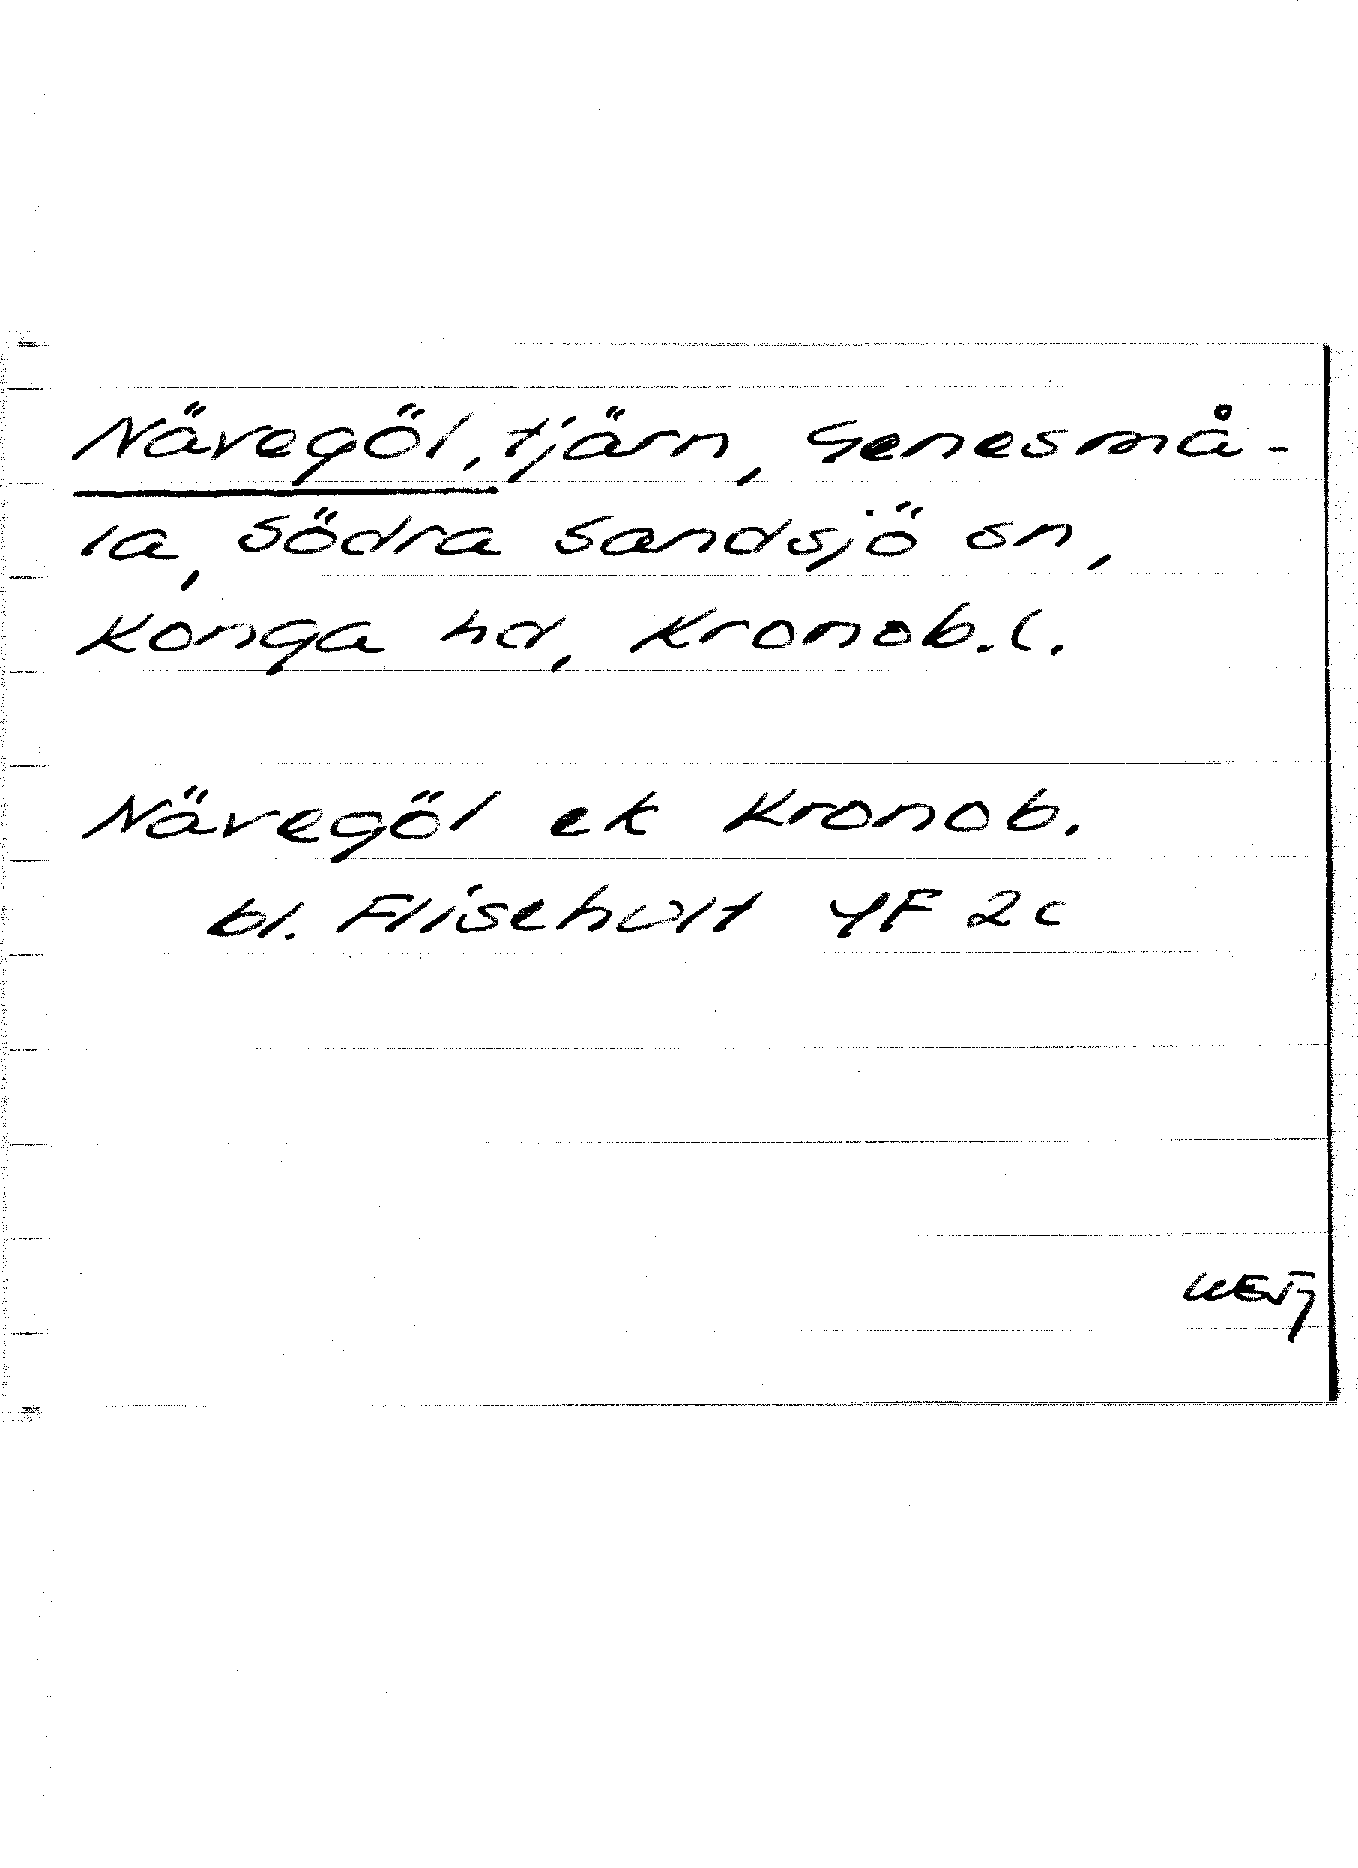 Nävegöl, tjärn, Genesmå-
la, Södra Sandsjö sn,
Konga hd, Kronob. l.
Nävegöl ek Kronob.
bl. Fliseholt 4F 2c